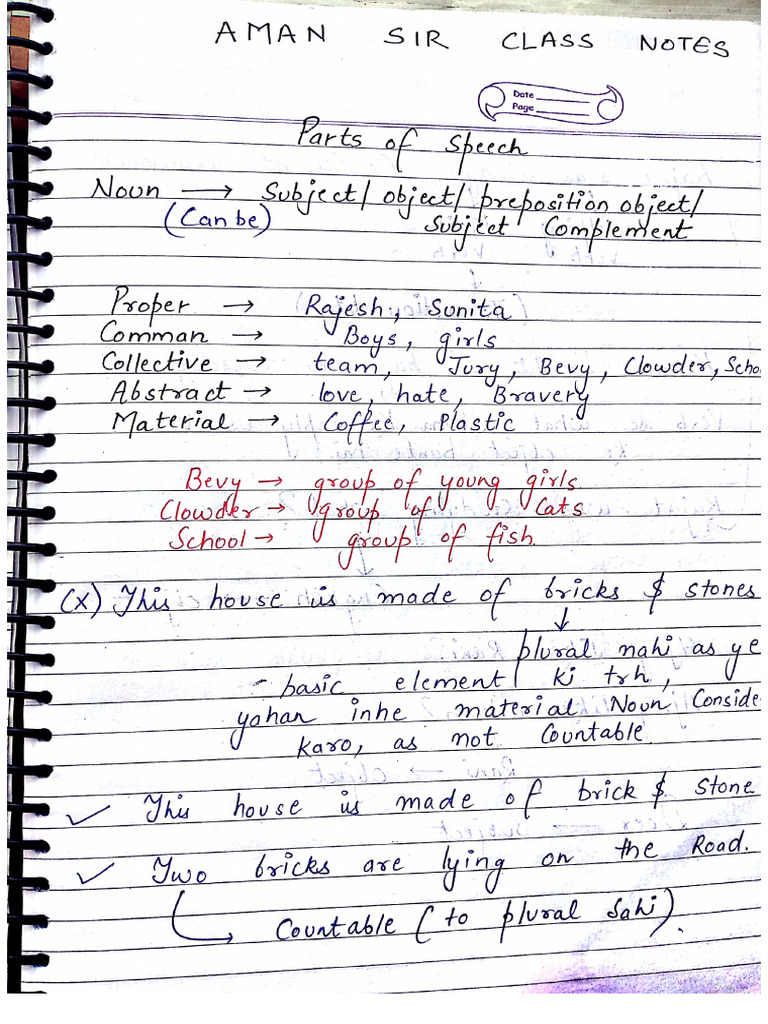 AMAN SIR CLASS NOTES
Date
Page
Parts of Speech
Noun → Subject/ object/ preposition object/
(Can be) Subject Complement
Proper → Rajesh, Sunita
Comman → Boys, girls
Collective → team, Jury, Bevy, Clowder, Scho
Abstract → love, hate, Bravery
Material → Coffee, Plastic
Bevy → group of young girls
Clowder → group of Cats
School → group of fish.
(X) This house is made of bricks & stones
↓
plural nahi as ye
- basic element ki trh,
yahan inhe material Noun Conside
karo, as not Countable
✓ This house is made of brick & Stone
✓ Two bricks are lying on the Road.
→ Countable (to plural Sahi).